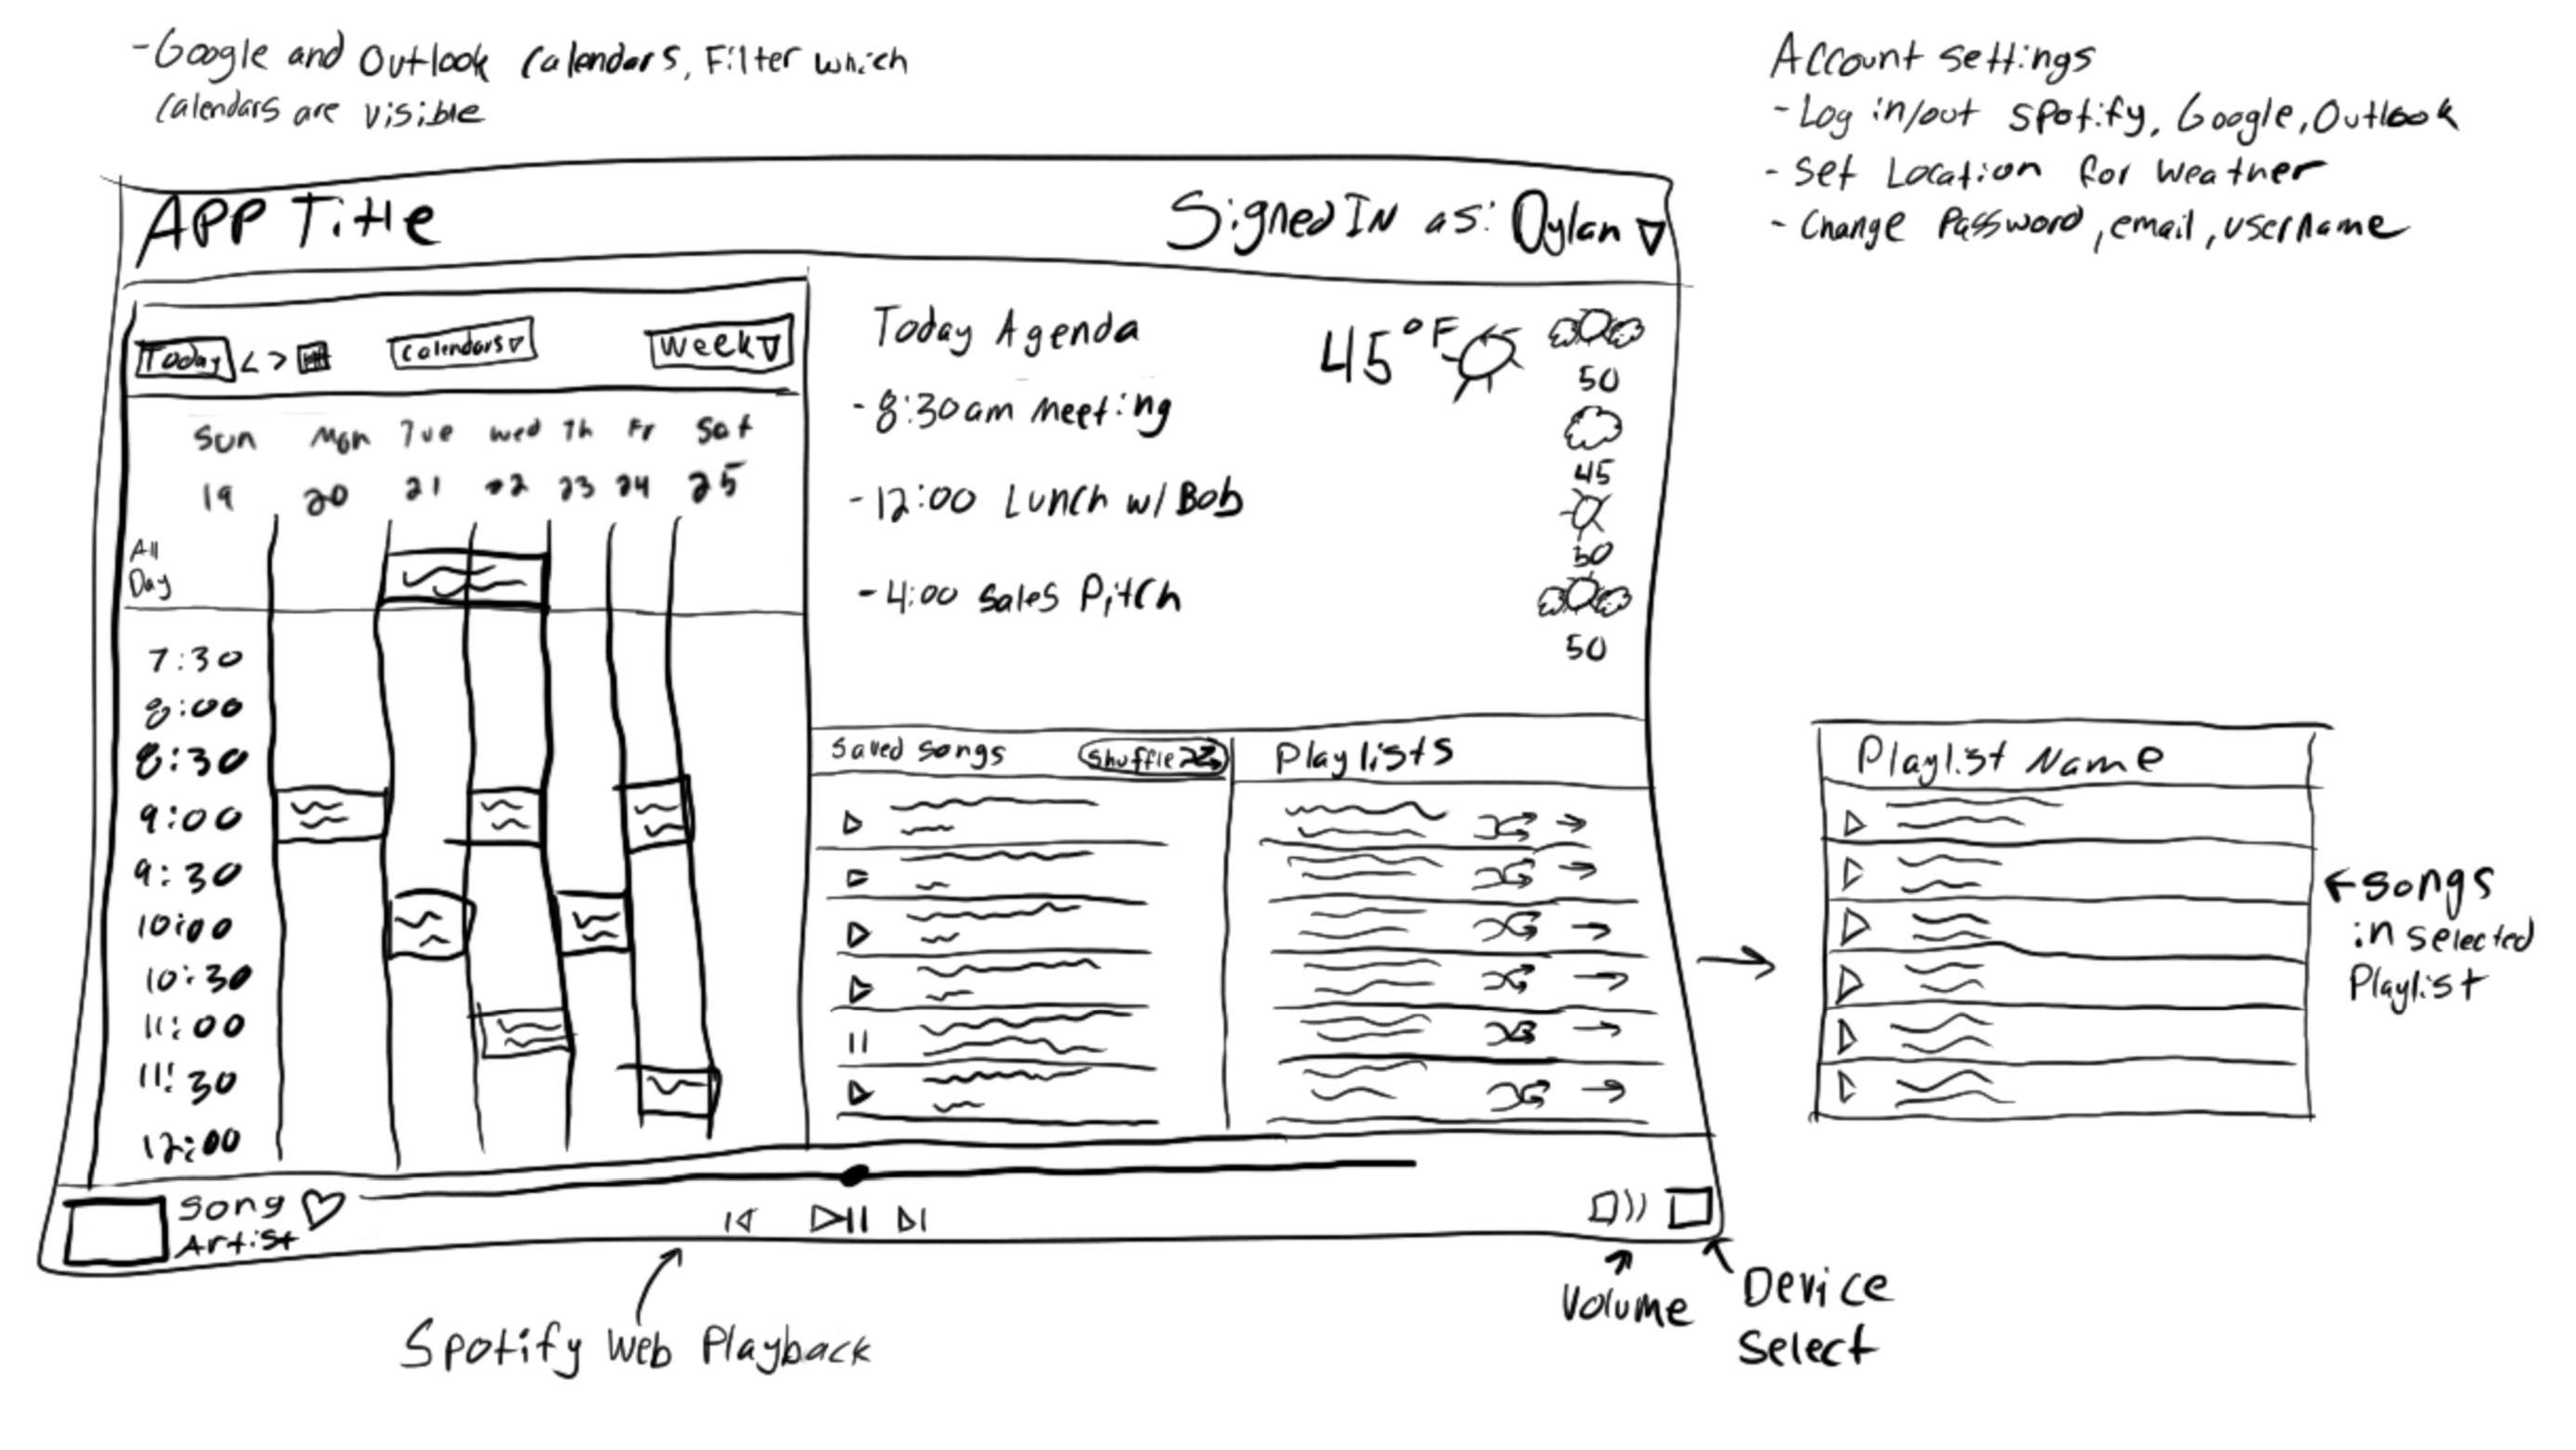 -Google and Outlook Calendars, Filter which
Calendars are visible
Account settings
- Log in/out Spotify, Google, Outlook
- Set Location for weather
- Change Password, email, username
APP Title
Signed IN as: Dylan
Today < >
Calendars
Week
Sun Mon Tue Wed Th Fr Sat
19 20 21 22 23 24 25
All
Day
7:30
8:00
8:30
9:00
9:30
10:00
10:30
11:00
11:30
12:00
Today Agenda
- 8:30am Meeting
- 12:00 Lunch w/ Bob
- 4:00 Sales Pitch
45°F
50
45
50
50
Saved Songs
Shuffle
Playlists
Playlist Name
songs
in selected
Playlist
Song
Artist
Spotify Web Playback
Volume
Device
Select